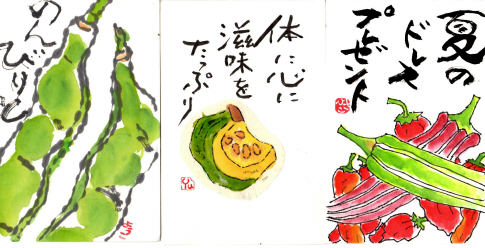 のんびりと
体に心に
滋味を
たっぷり
夏の
プレゼント